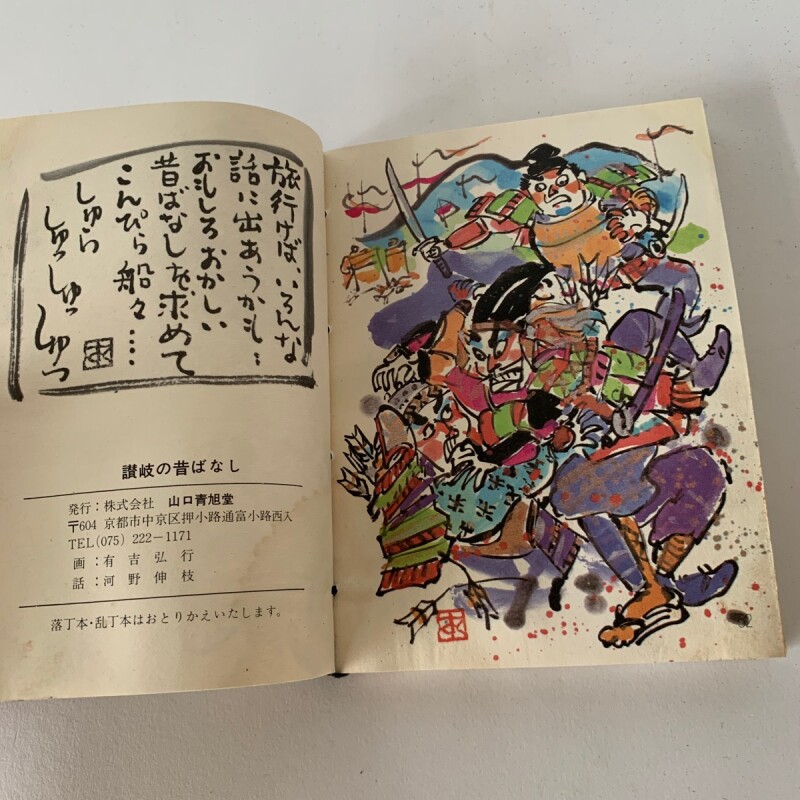 旅行けば、いろんな
話に出あうかも…
おもしろおかしい
昔ばなしを求めて
こんぴら船々……
しゅら
しゅっしゅっ
しゅっ
讃岐の昔ばなし
発行：株式会社 山口青旭堂
〒604 京都市中京区押小路通富小路西入
TEL(075) 222－1171
画：有吉弘行
話：河野伸枝
落丁本・乱丁本はおとりかえいたします。